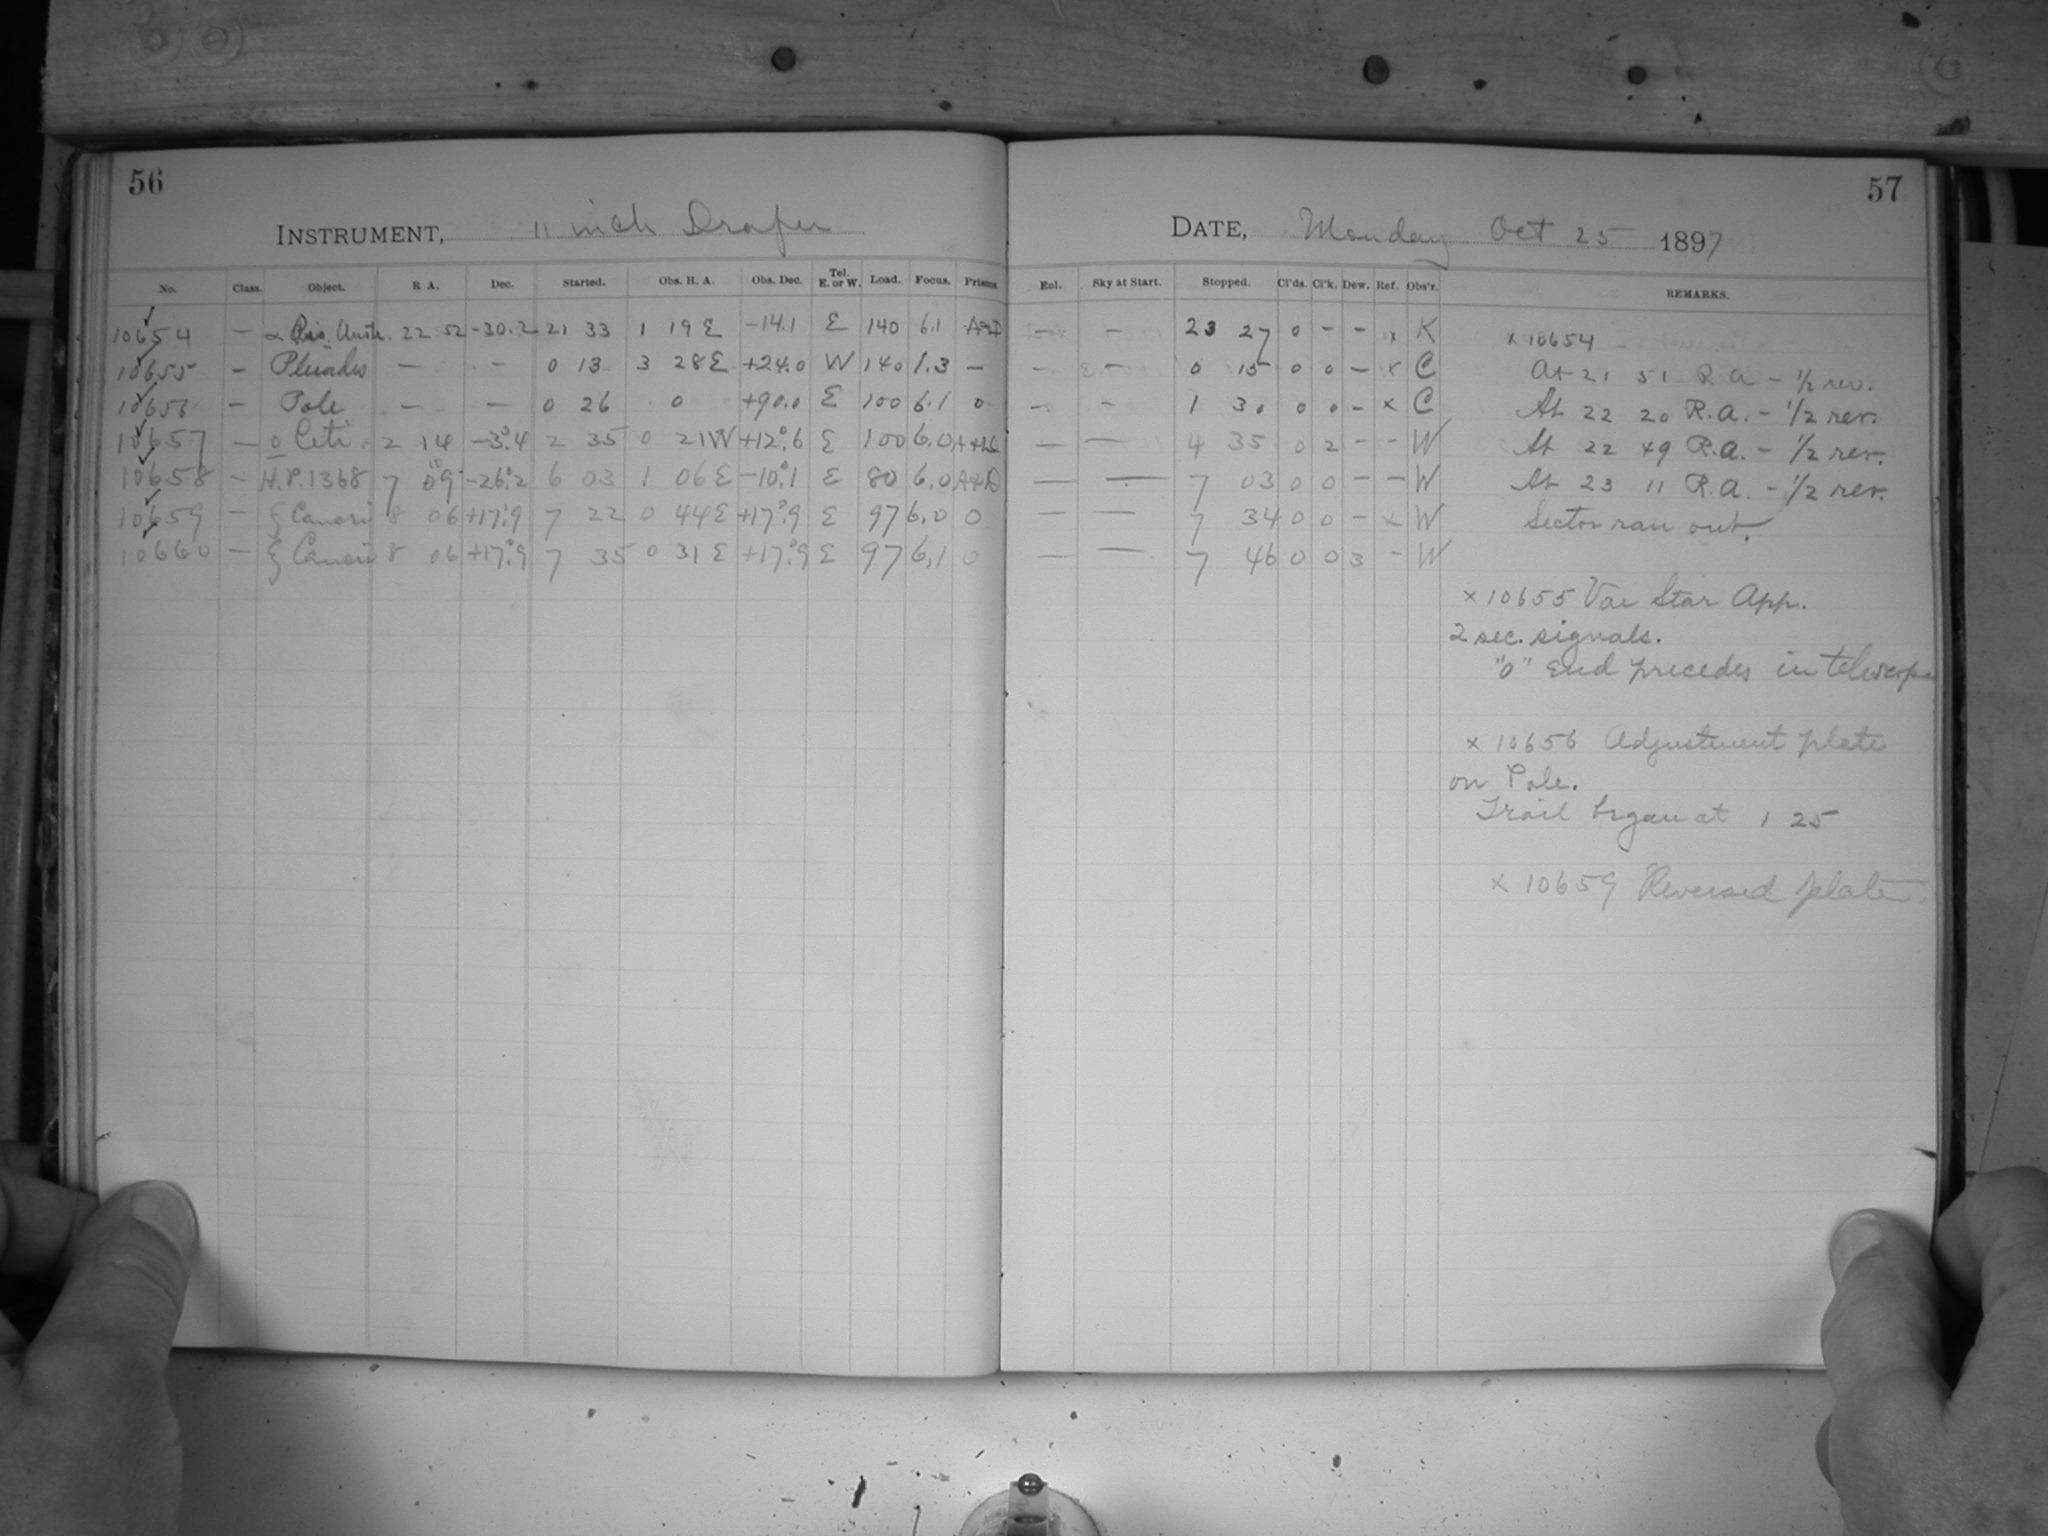 56
INSTRUMENT, 11 inch Draper
No. Class. Object. R A. Dec. Started. Obs. H. A. Obs. Dec. Tel. E. or W. Load. Focus. Prisms.
10654 — α Pis. Austr. 22 52 -30.2 21 33 1 19 E -14.1 E 140 6.1 A+D
10655 — Pleiades — — 0 13 3 28 E +24.0 W 140 1.3 —
10656 — Pole — — 0 26 0 +90.0 E 100 6.1 0
10657 — o Ceti. 2 14 -3°.4 2 35 0 21 W +12°.6 E 100 6.0 A+D
10658 — H.P. 1368 7 09 -26°.2 6 03 1 06 E -10°.1 E 80 6.0 A+D
10659 — ξ Cancri 8 06 +17°.9 7 22 0 44 E +17°.9 E 97 6.0 0
10660 — ξ Cancri 8 06 +17°.9 7 35 0 31 E +17°.9 E 97 6.1 0
57
DATE, Monday Oct 25 1897
Enl. Sky at Start. Stopped. Cl'ds. Cl'k. Dew. Ref. Obs'r. REMARKS.
— — 23 27 0 - - x K
— — 0 15 0 0 — x C
— — 1 30 0 0 - x C
— — 4 35 0 2 - - W
— — 7 03 0 0 - - W
— — 7 34 0 0 - x W
— — 7 46 0 0 3 - W
x 10654
At 21 51 R.a - 1/2 rev.
At 22 20 R.a. - 1/2 rev.
At 22 49 R.a. - 1/2 rev.
At 23 11 R.a. - 1/2 rev.
Sector ran out.
x 10655 Var Star App.
2 sec. signals.
"0" End precedes in telescope
x 10656 Adjustment plate
on Pole.
Trail began at 1 25
x 10659 Reversed plate.